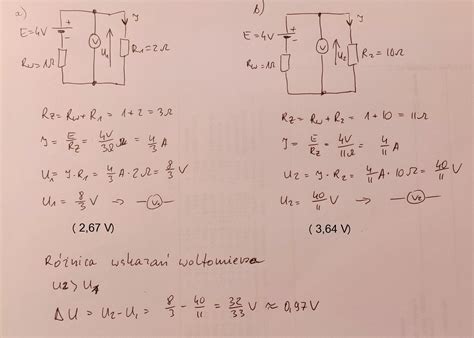 a)
E=4V
Rw=1Ω
V
U1
I
R1=2Ω
Rz=Rw+R1=1+2=3Ω
I=E/Rz=4V/3Ω=4/3A
U1=I·R1=4/3A·2Ω=8/3V
U1=8/3V → V1
(2,67 V)
b)
E=4V
Rw=1Ω
V
U2
I
R2=10Ω
Rz=Rw+R2=1+10=11Ω
I=E/Rz=4V/11Ω=4/11A
U2=I·R2=4/11A·10Ω=40/11V
U2=40/11V → V2
(3,64 V)
Różnica wskazań woltomierza
U2>U1
ΔU=U2-U1=8/3-40/11=32/33V≈0,97V